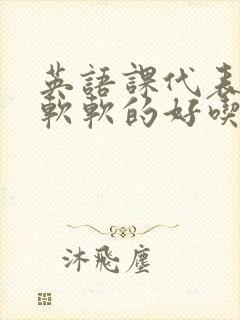 英語課代表
軟軟的好喫
沐飛塵